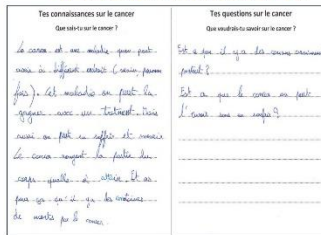 Tes connaissances sur le cancer
Que sais-tu sur le cancer ?
Le cancer est une maladie qu'on peut
avoir à différent endroit (
). Cet maladie on peut la
gagner avec un traitment mais
aussi on peut en souffrir et mourir
Le cancer la partie du
corps qu'elle à attein. Et
pour ça qu'il y a des
de morts par le cancer.
Tes questions sur le cancer
Que voudrais-tu savoir sur le cancer ?
Est-ce que il y a des cancers
partout ?
Est-ce que le cancer on peut
l'avoir une enfant ?